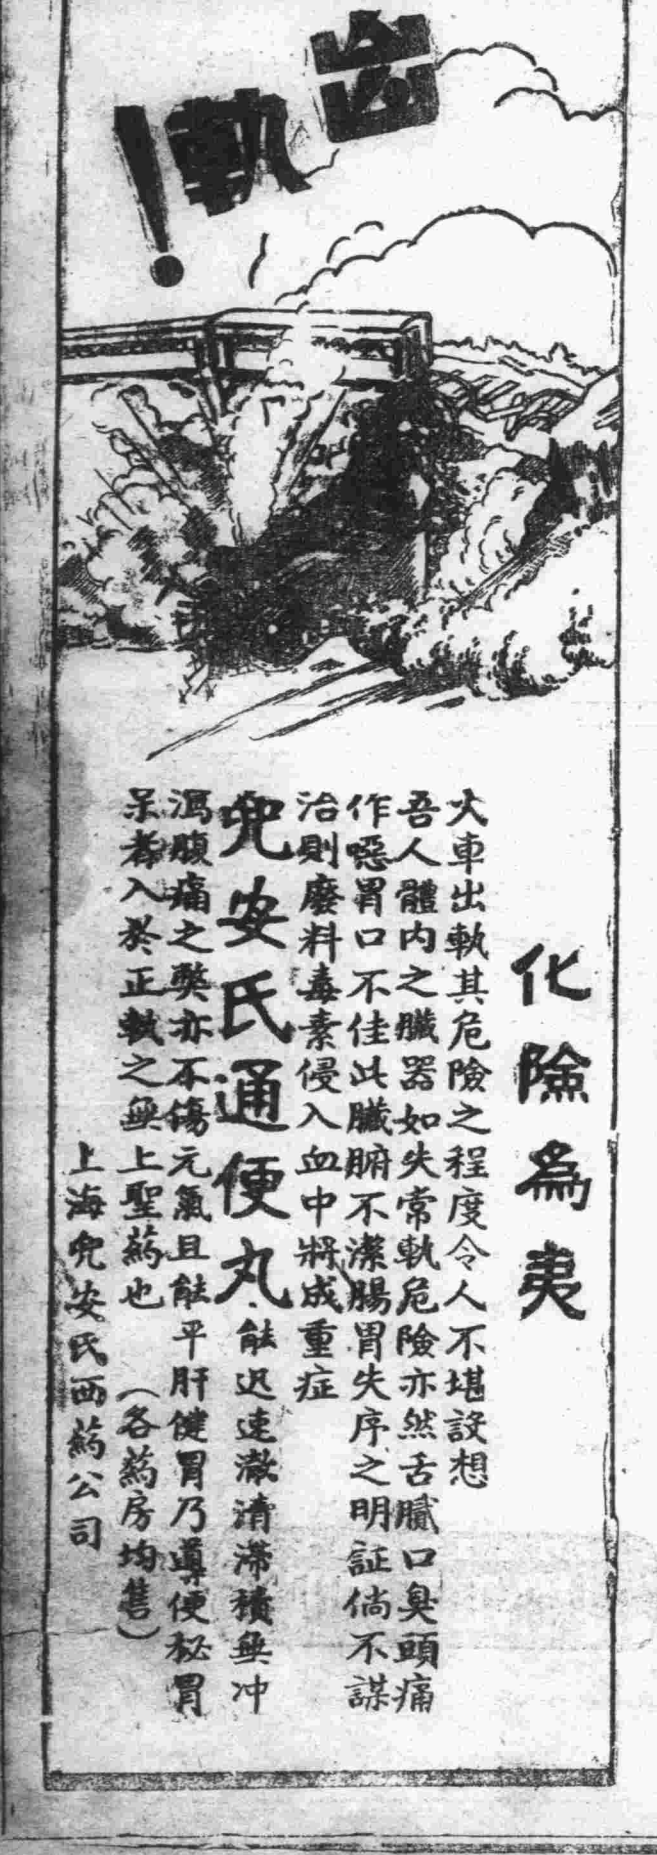 出軌!
化險為夷
火車出軌其危險之程度令人不堪設想
吾人體內之臟器如失常軌危險亦然舌膩口臭頭痛
作噁胃口不佳此臟腑不潔腸胃失序之明証倘不謀
治則廢料毒素侵入血中將成重症
兜安氏通便丸.能迅速澈清滯積無冲
瀉腹痛之弊亦不傷元氣且能平肝健胃乃導便秘胃
呆者入於正軌之無上聖藥也 (各藥房均售)
上海兜安氏西藥公司